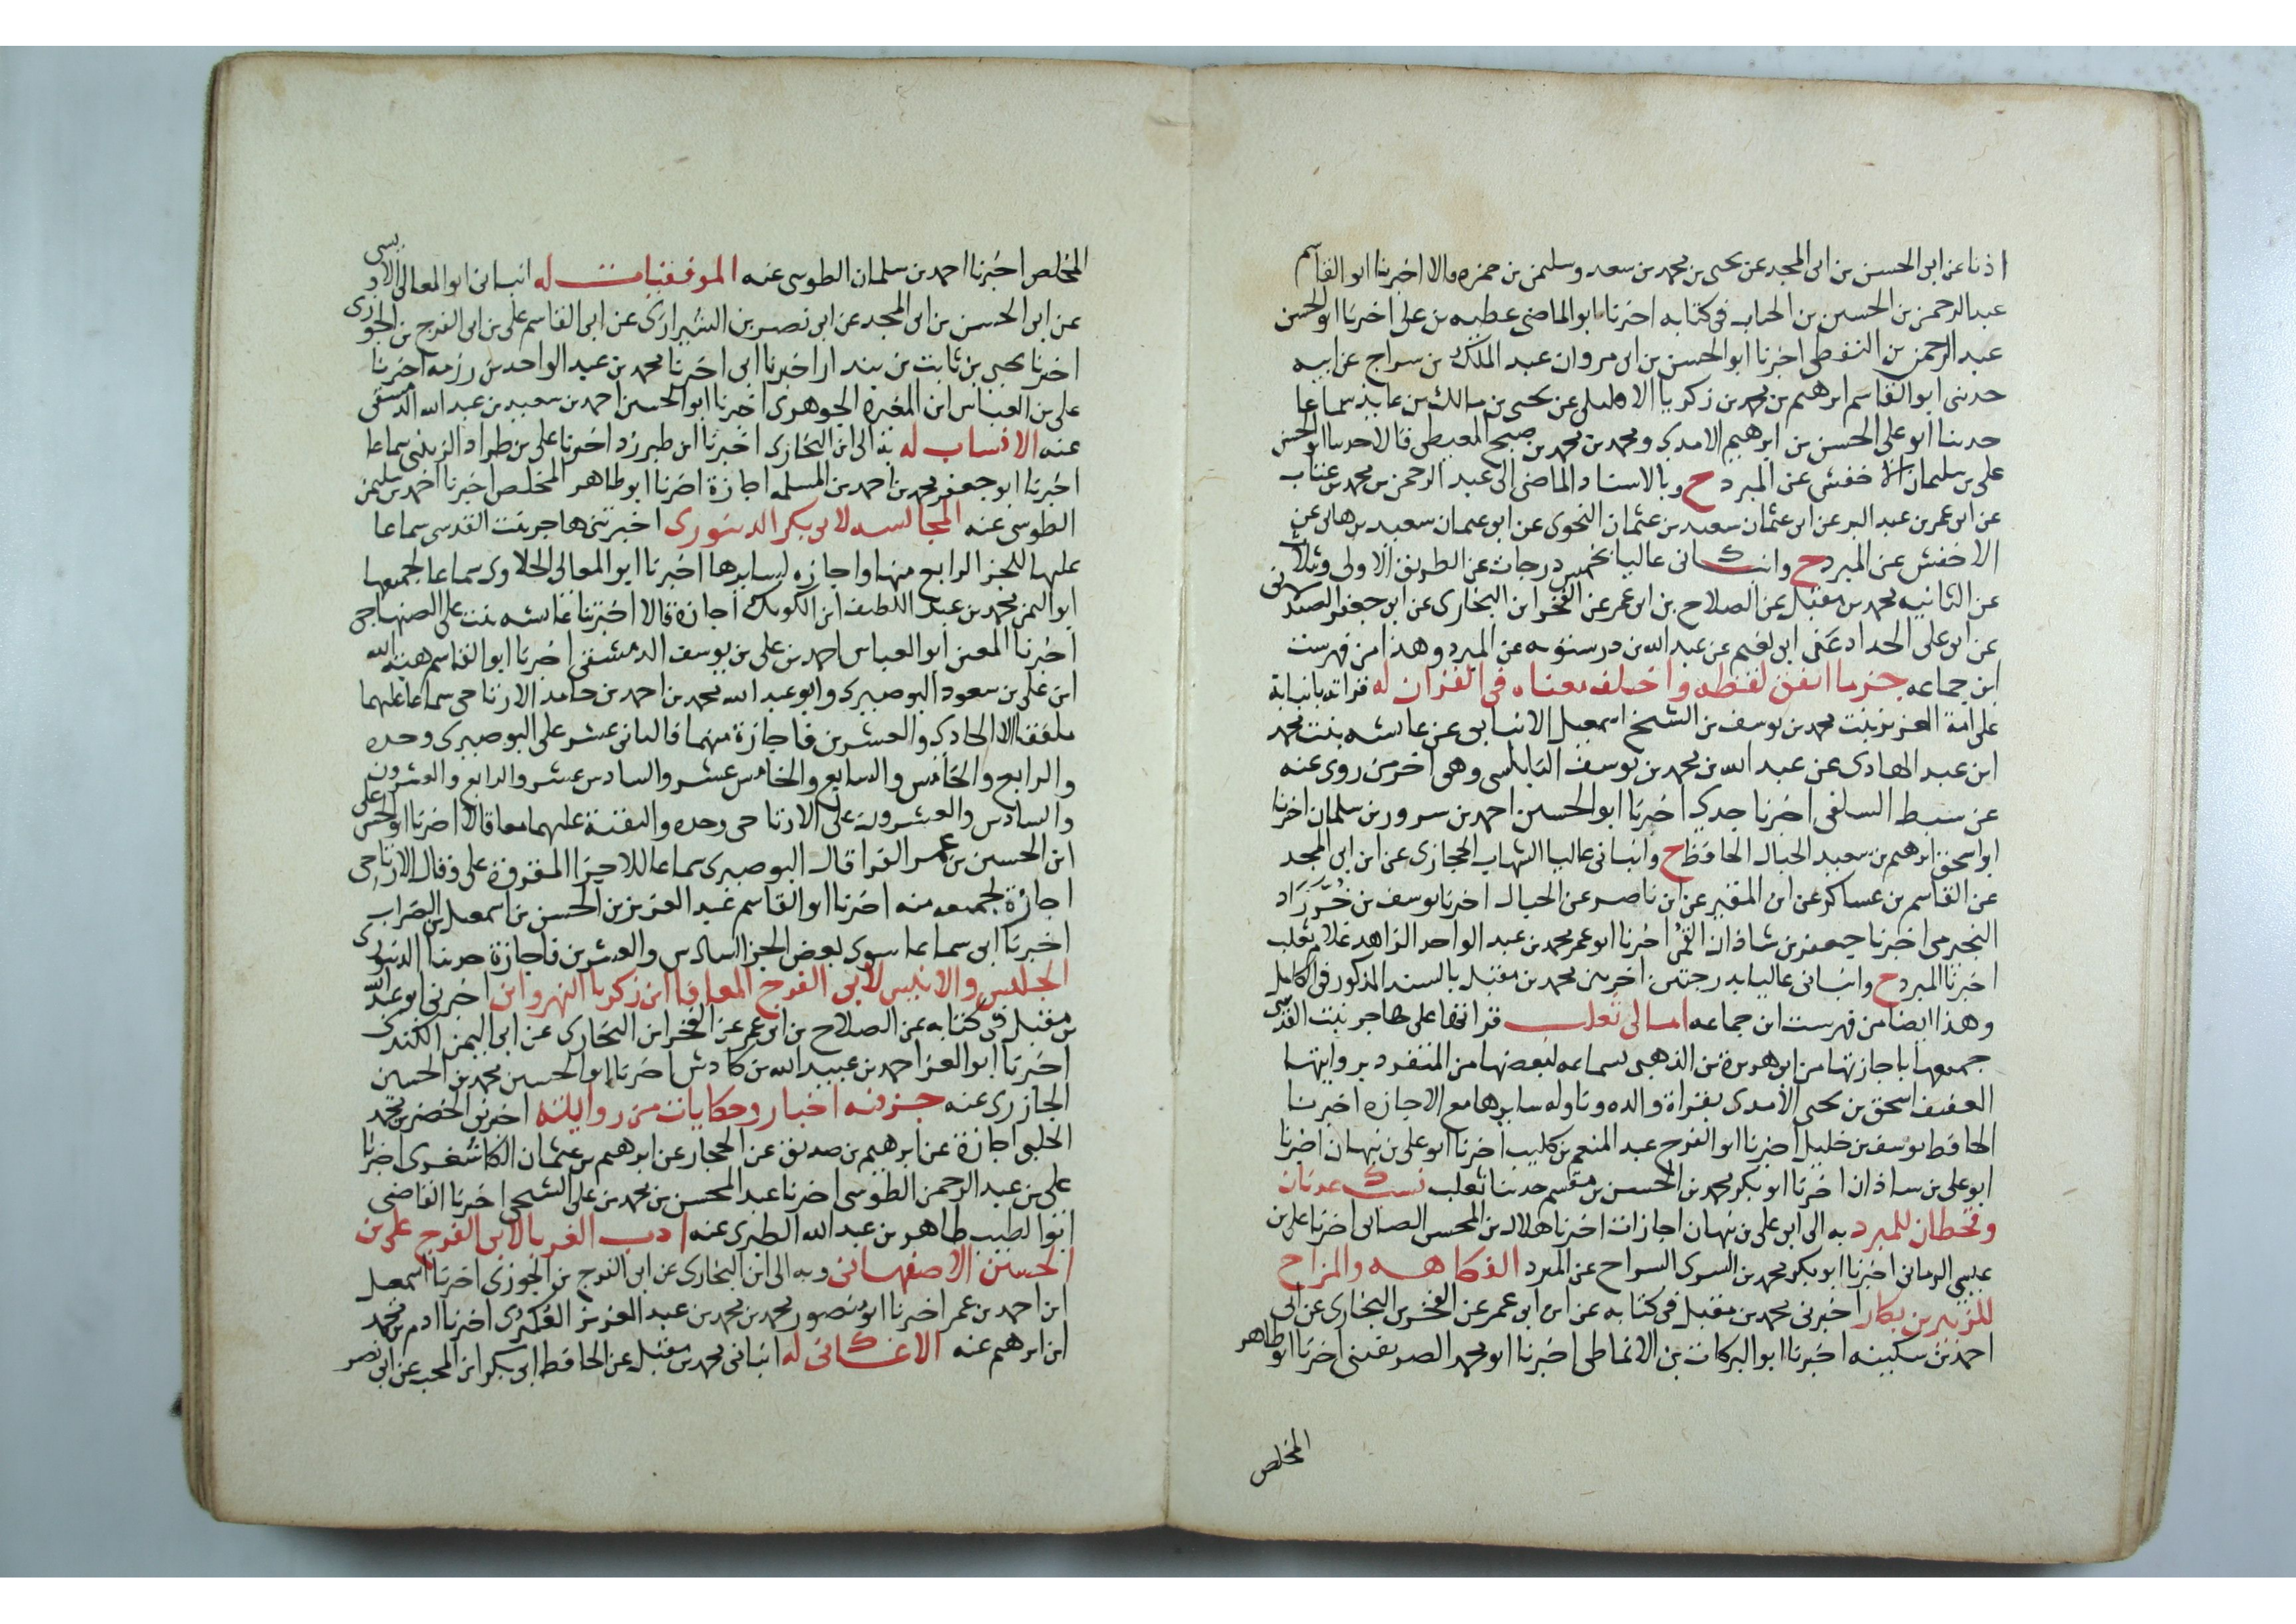 اذنا عن ابى الحسن بن ابى المجد عن يحيى بن محمد بن سعد وسليمن بن حمزه قالا اخبرنا ابو القاسم
عبد الرحمن بن الحسين بن الحباب فى كتابه اخبرنا ابو الماضى عطيه بن على اخبرنا ابو الحسن
عبد الرحمن بن النفطى اخبرنا ابو الحسن بن ابى مروان عبد الملك بن سراج عن ابيه
حدثنى ابو القاسم ابرهيم بن محمد بن زكريا الافليلى عن يحيى بن مالك بن عايذ سماعا
حدثنا ابو على الحسن بن ابرهيم الامدى ومحمد بن محمد بن صبح المعيطى قالا حدثنا ابو الحسن
على بن سليمان الاخفش عن المبرد ح وبالاسناد الماضى الى عبد الرحمن بن محمد بن عتاب
عن ابى عمر بن عبد البر عن ابى عثمان سعيد بن عثمان النحوى عن ابى عثمان سعيد بن هانى عن
الاخفش عن المبرد ح وانبانى عاليا بخمس درجات عن الطريق الاولى وبثلاث
عن الثانيه محمد بن مقبل عن الصلاح بن ابى عمر عن الفخر ابن البخارى عن ابى جعفر الصيدلانى
عن ابى على الحداد عن ابى نعيم عن عبد الله بن درستويه عن المبرد وهذا من فهرست
ابن جماعه جزء ما اتفق لفظه واختلف معناه فى القران له قراته بانبابة
على امة العزيز بنت محمد بن يوسف بن الشيخ اسمعيل الانبابى عن عايشه بنت محمد
ابن عبد الهادى عن عبد الله بن محمد بن يوسف النابلسى وهى اخر من روى عنه
عن سبط السلفى اخبرنا جدى اخبرنا ابو الحسين احمد بن سرور بن سلمان اخبرنا
ابو اسحق ابرهيم بن سعيد الحبال الحافظ ح وانبانى عاليا الشهاب الحجازى عن ابن ابى المجد
عن القاسم بن عساكر عن ابن المقير عن ابن ناصر عن الحبال اخبرنا يوسف بن خرزاد
النجيرمى اخبرنا جعفر بن شاذان القمى اخبرنا ابو عمر محمد بن عبد الواحد الزاهد غلام ثعلب
اخبرنا المبرد ح وانبانى عاليا بدرجتين اخريين محمد بن مقبل بالسند المذكور فى الكامل
وهذا ايضا من فهرست ابن جماعه امالى ثعلب قرا على هاجر بنت القدسى
جميعها باجازتها من ابى هريرة بن الذهبى بسماعه لبعضها من المنفرد بروايتها
العفيف اسحق بن يحيى الامدى بقراة والده وتاوله سايرها مع الاجازه اخبرنا
الحافظ يوسف بن خليل اخبرنا ابو الفرج عبد المنعم بن كليب اخبرنا ابو على بن نبهان اخبرنا
ابو على بن شاذان اخبرنا ابو بكر محمد بن الحسن بن مقسم حدثنا ثعلب نسب عدنان
وقحطان للمبرد به الى ابى على بن نبهان اجازات اخبرنا هلال بن المحسن الصابى اخبرنا على بن
عيسى الرمانى اخبرنا ابو بكر محمد بن السرى السراج عن المبرد الفكاهه والمزاح
للزبير بن بكار اخبرنى محمد بن مقبل فى كتابه عن ابن ابى عمر عن الفخر بن البخارى عن ابى
احمد بن سكينه اخبرنا ابو البركات بن الانماطى اخبرنا ابو محمد الصريفينى اخبرنا ابو طاهر
المخلص
المخلص اخبرنا احمد بن سلمان الطوسى عنه الموفقيات له انبانى ابو المعالى الادبسى
عن ابى الحسن بن ابى المجد عن ابى نصر بن الشيرازى عن ابى القاسم على بن ابى الفرج بن الجوزى
اخبرنا يحيى بن ثابت بن بندار اخبرنا ابى اخبرنا محمد بن عبد الواحد بن رزمه اخبرنا
على بن العباس ابن المغيرة الجوهرى اخبرنا ابو الحسن احمد بن سعيد بن عبد الله الدمشقى
عنه الانساب له به الى ابن البخارى اخبرنا ابن طبرزد اخبرنا على بن طراد الزينبى سماعا
اخبرنا ابو جعفر محمد بن احمد بن المسلمه اجازة اخبرنا ابو طاهر المخلص اخبرنا احمد بن سليمن
الطوسى عنه المجالسه لابى بكر الدينورى اخبرتنى هاجر بنت القدسى سماعا
عليها للجز الرابع منها واجازه لسايرها اخبرنا ابو المعالى الحلاوى سماعا لجميعها
ابو اليمن محمد بن عبد اللطيف ابن الكويك اجازة قالا اخبرتنا عائشه بنت على الصنهاجى
اخبرنا المعين ابو العباس احمد بن على بن يوسف الدمشقى اخبرنا ابو القاسم هبة الله
ابن على بن سعود البوصيرى وابو عبد الله محمد بن احمد بن حامد الارتاحى سماعا عليهما
ملفقا الا الحادى والعشرين فاجازة منهما فالثانى عشر على البوصيرى وحده
والرابع والخامس والسابع والخامس عشر والسادس عشر والرابع والعشرون
والسادس والعشرون على الارتاحى وحده والبقية عليهما معا قالا اخبرنا ابو الحسن على
ابن الحسين بن عمر الفرا قال البوصيرى سماعا للاجزا المقروة على وقال الارتاحى
اجازة لجميعه منه اخبرنا ابو القاسم عبد العزيز بن الحسن بن اسمعيل بن الضراب
اخبرنا ابى سماعا سوى بعض الجز السادس والعشرين فاجازة حدثنا الدينورى
الجليس والانيس لابى الفرج المعافا ابن زكريا النهروانى اخبرنى ابو عبد الله
بن مقبل فى كتابه عن الصلاح بن ابى عمر عن الفخر ابن البخارى عن ابى اليمن الكندى
اخبرنا ابو العز احمد بن عبيد الله بن كادش اخبرنا ابو الحسين محمد بن الحسين
الجازرى عنه جزء فيه اخبار وحكايات من روايته اخبرنى الخضر بن محمد
الحلبى اجازة عن ابرهيم بن صديق عن الحجار عن ابرهيم بن عثمان الكاشغرى اخبرنا
على بن عبد الرحمن الطوسى اخبرنا عبد المحسن بن محمد بن على الشيحى اخبرنا القاضى
ابو الطيب طاهر بن عبد الله الطبرى عنه ادب الغربا لابى الفرج على بن
الحسين الاصفهانى وبه الى ابن البخارى عن ابى الفرج بن الجوزى اخبرنا اسمعيل
ابن احمد بن عمر اخبرنا ابو منصور محمد بن محمد بن عبد العزيز العكبرى اخبرنا ادم بن محمد
ابن ابرهيم عنه الاغانى له انبانى محمد بن مقبل عن الحافظ ابى بكر ابن المحب عن ابى نصر